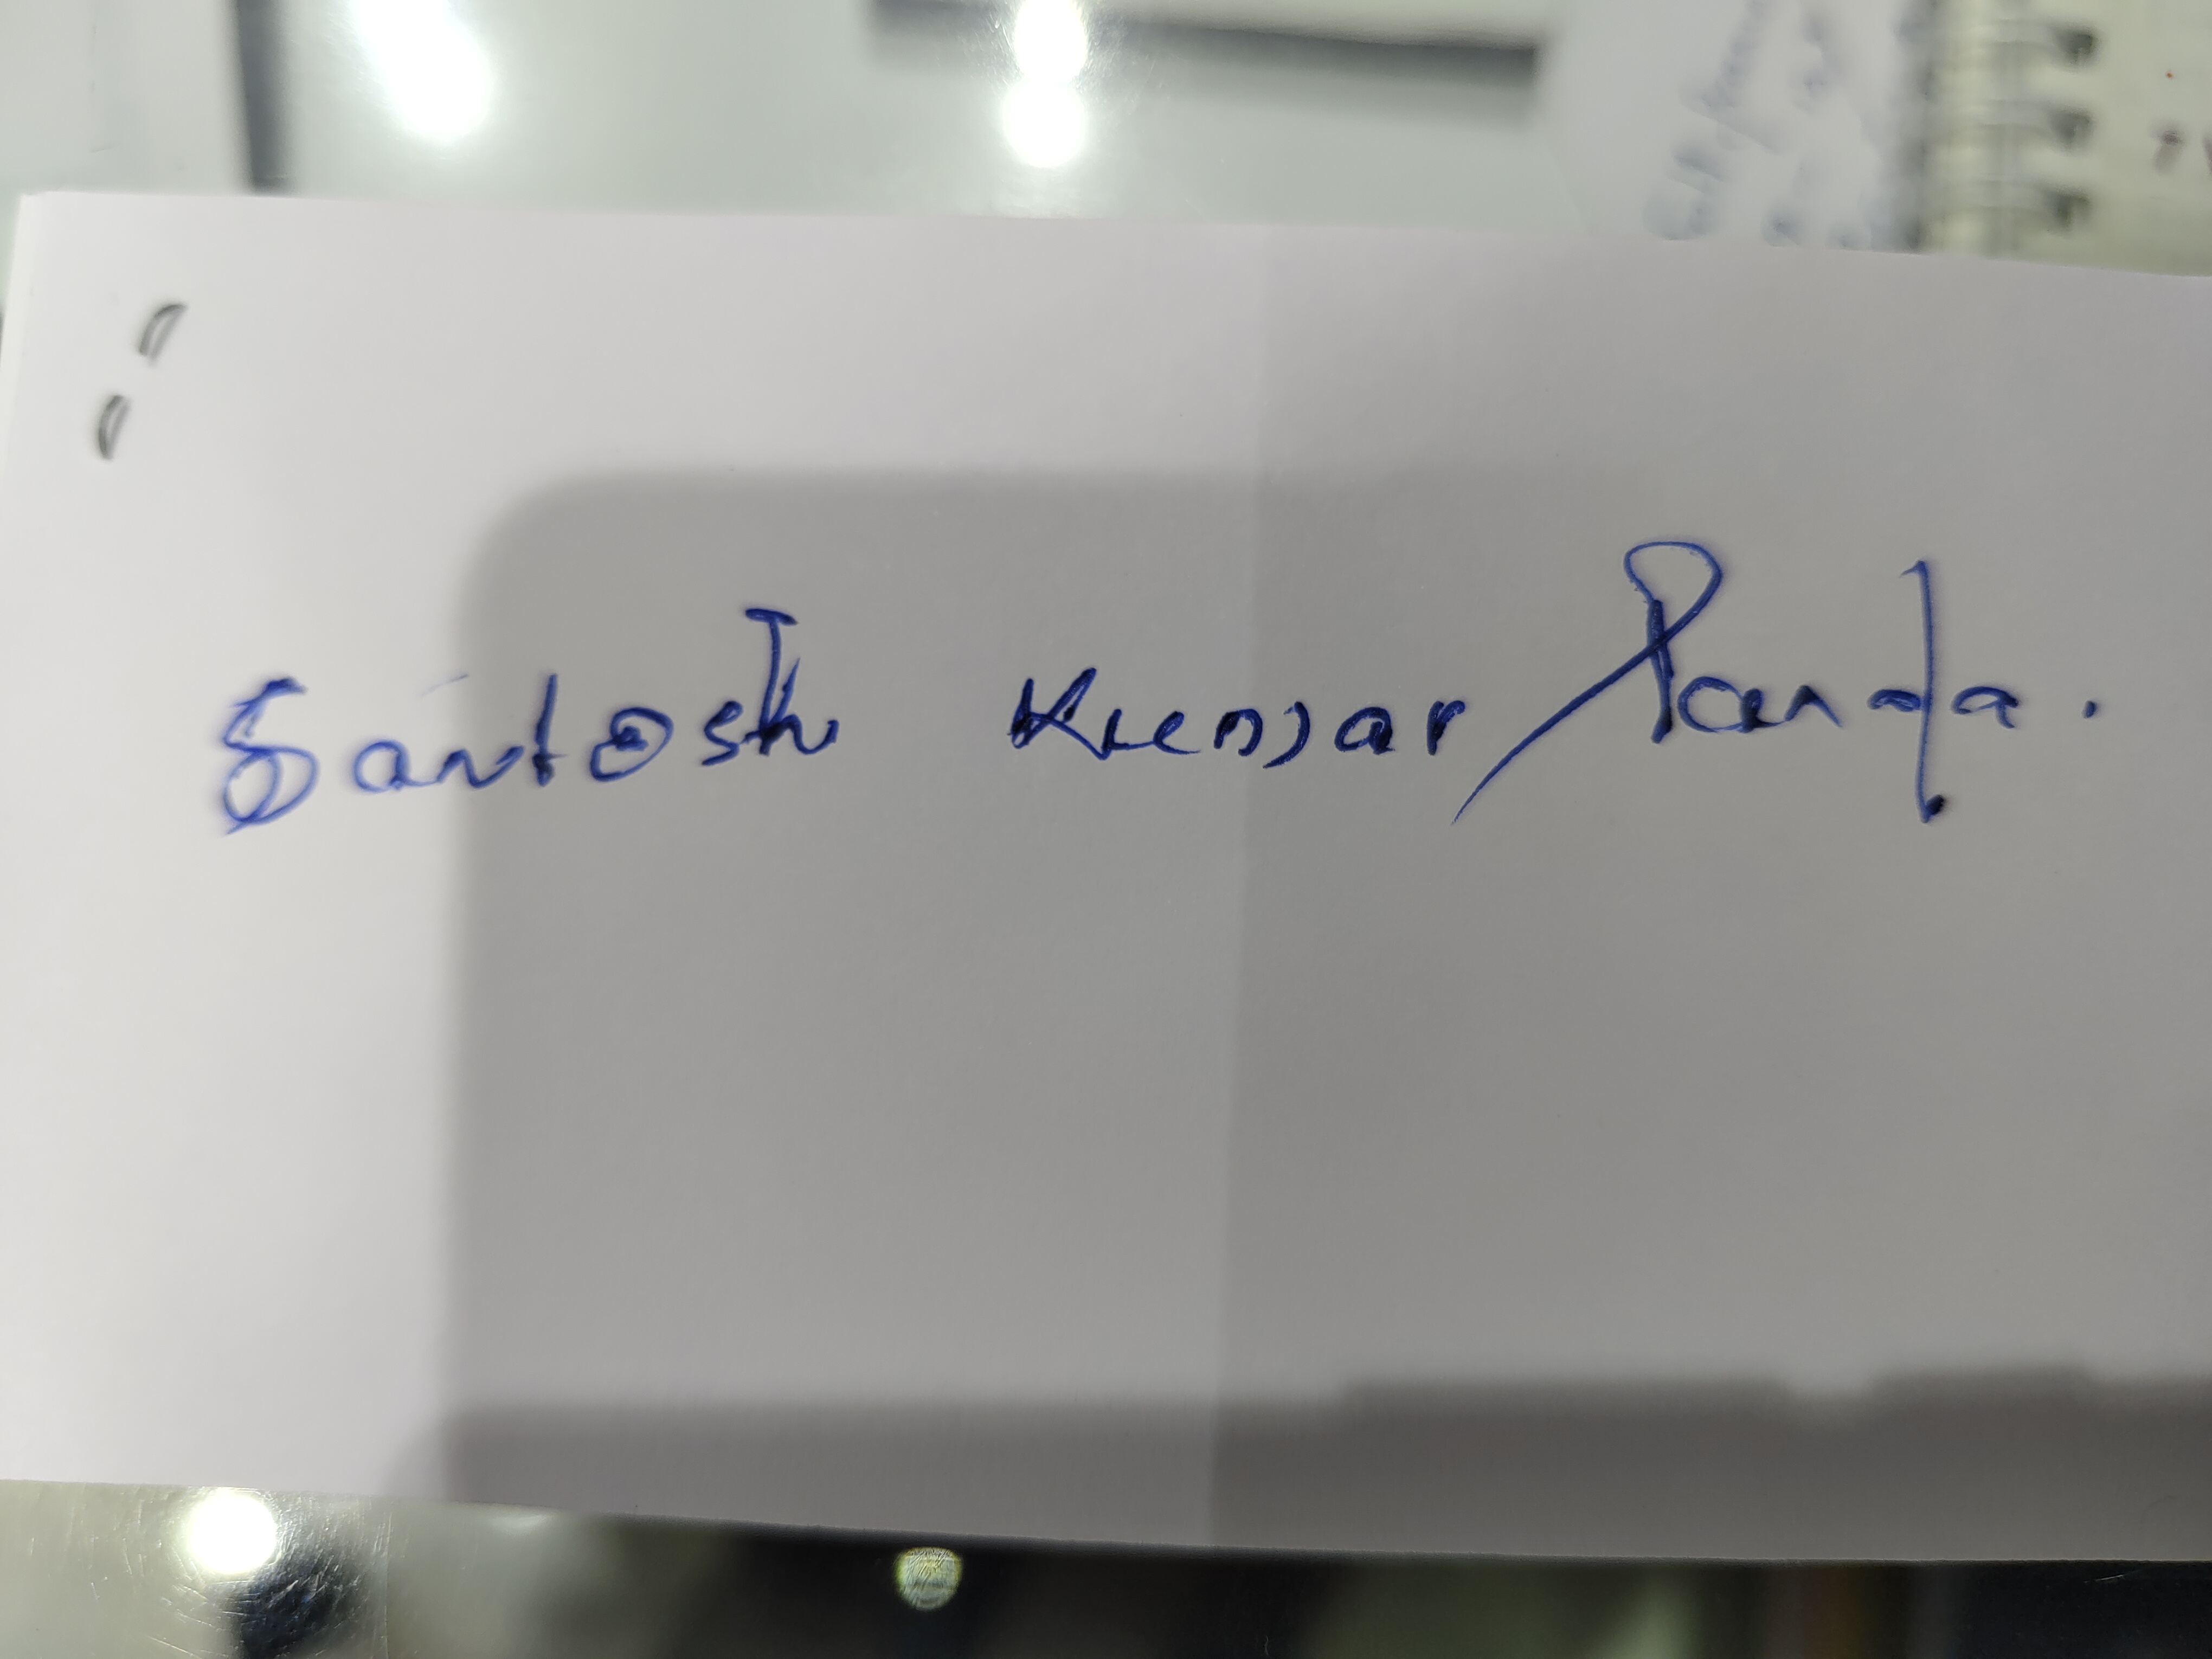 Santosh Kumar Panda.